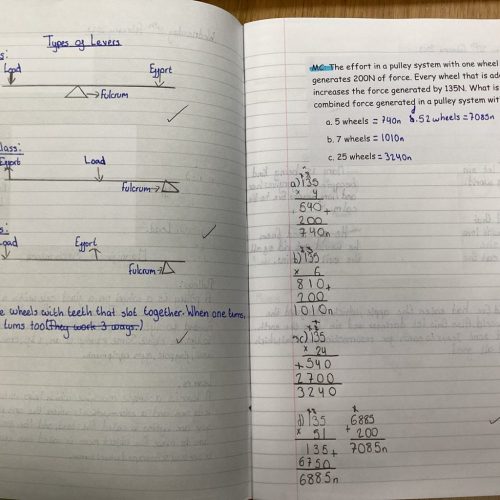 Types of Levers
s:
Load
Effort
→Fulcrum
lass:
Effort
Load
Fulcrum→
s:
Load
Effort
Fulcrum→
e wheels with teeth that slot together. When one turns,
turns too (They work 3 ways.)
MC: The effort in a pulley system with one wheel
generates 200N of force. Every wheel that is ad
increases the force generated by 135N. What is
combined force generated in a pulley system wit
a. 5 wheels = 740n d. 52 wheels = 7085n
b. 7 wheels = 1010n
c. 25 wheels = 3240n
a) 135
x 4
540+
200
740n
b) 135
x 6
810+
200
1010n
c) 135
x 24
+540
2700
3240
d) 135
x 51
135+
6750
6885n
6885
+ 200
7085n